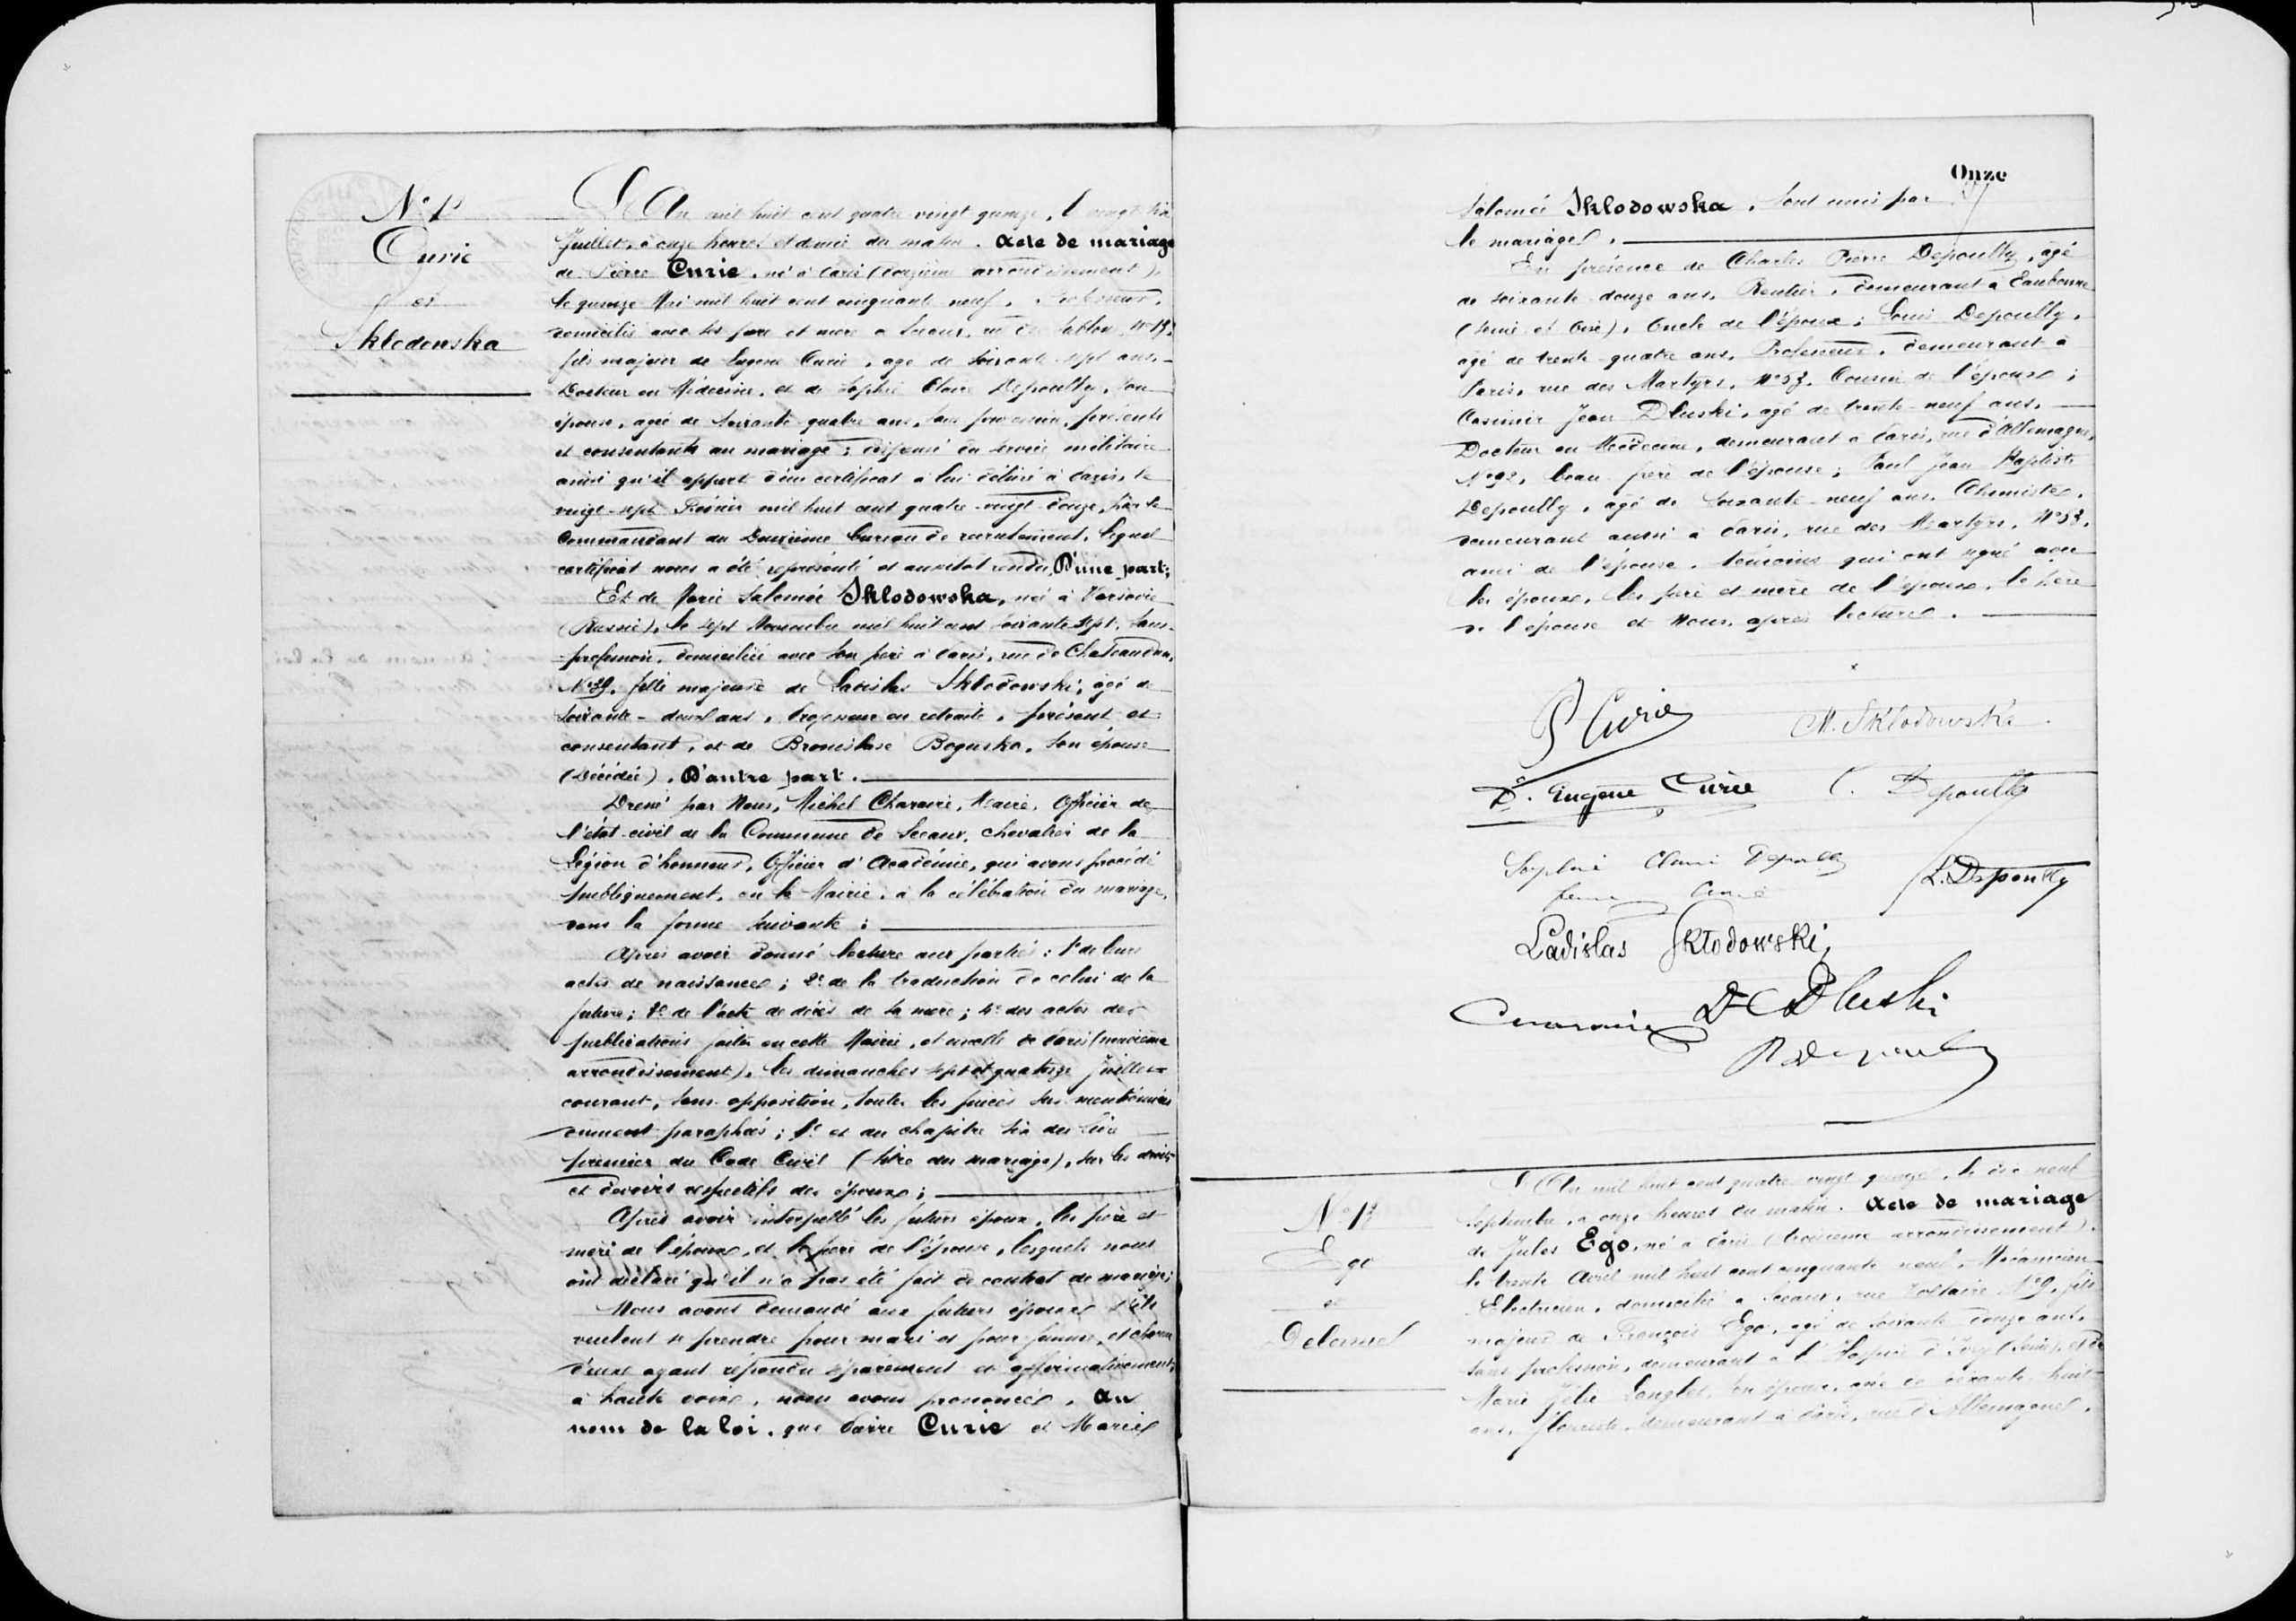 Curie
et
Sklodowska
L'An mil huit cent quatre vingt quinze, le vingt six
Juillet, à onze heures et demie du matin. Acte de mariage
de Pierre Curie, né à Paris (douzième arrondissement),
le quinze Mai mil huit cent cinquante neuf, Professeur,
domicilié avec ses père et mère à Sceaux, rue des Sablons, No 13,
fils majeur de Eugène Curie, âgé de soixante-sept ans,
Docteur en Médecine, et de Sophie Claire Depoully, son
épouse, âgée de soixante quatre ans, sans profession, présents
et consentants au mariage; dispensé du service militaire
ainsi qu'il appert d'un certificat à lui délivré à Paris, le
vingt-sept Février mil huit cent quatre-vingt-douze, par le
Commandant du Deuxième bureau de recrutement, lequel
certificat nous a été représenté et aussitôt rendu, D'une part;
Et de Marie Salomée Sklodowska, née à Varsovie
(Russie), le sept Novembre mil huit cent soixante sept, sans
profession, domiciliée avec son père à Paris, rue de Chateaudun,
No 39, fille majeure de Ladislas Sklodowski, âgé de
soixante-deux ans, Professeur en retraite, présent et
consentant, et de Bronislase Boguska, son épouse
(décédée), D'autre part.
Dressé par Nous, Michel Charaire, Maire, Officier de
l'état-civil de la Commune de Sceaux, chevalier de la
Légion d'honneur, Officier d'Académie, qui avons procédé
publiquement, en la Mairie, à la célébration du mariage,
dans la forme suivante :
Après avoir donné lecture aux parties : 1o de leurs
actes de naissance; 2o de la traduction de celui de la
future; 3o de l'acte de décès de sa mère; 4o des actes des
publications faites en cette Mairie, et en celle de Paris (neuvième
arrondissement), les dimanches sept et quatorze Juillet
courant, sans opposition, toutes les pièces sus-mentionnées
dûment paraphées; 5o et du chapitre six du livre
premier du Code Civil (titre du mariage), sur les droits
et devoirs respectifs des époux;
Après avoir interpellé les futurs époux, les père et
mère de l'époux, et le père de l'épouse, lesquels nous
ont déclaré qu'il n'a pas été fait de contrat de mariage;
Nous avons demandé aux futurs époux s'ils
veulent se prendre pour mari et pour femme, et chacun
d'eux ayant répondu séparément et affirmativement,
à haute voix, nous avons prononcé, au
nom de la loi, que Pierre Curie et Marie
Onze
Salomée Sklodowska, sont unis par
le mariage.
En présence de Charles Pierre Depoully, âgé
de soixante-douze ans, Rentier, demeurant à Eaubonne
(Seine et Oise), Oncle de l'époux; Louis Depoully,
âgé de trente-quatre ans, Professeur, demeurant à
Paris, rue des Martyrs, No 53, Cousin de l'époux;
Casimir Jean Dluski, âgé de trente-neuf ans,
Docteur en Médecine, demeurant à Paris, rue d'Allemagne,
No 92, beau-frère de l'épouse; Paul Jean Baptiste
Depoully, âgé de soixante-neuf ans, Chimiste,
demeurant aussi à Paris, rue des Martyrs, No 53,
ami de l'épouse, témoins qui ont signé avec
les époux, les père et mère de l'époux, le père
de l'épouse et Nous, après lecture.
P Curie
M. Sklodowska.
Dr. Eugène Curie
C. Depoully
Sophie Claire Depoully
femme Curie
L. Depoully
Ladislas Skłodowski
Dr C Dluski
Charaire
P Depoully
Ego
et
Delomel
L'An mil huit cent quatre vingt quinze, le dix neuf
Septembre, à onze heures du matin. Acte de mariage
de Jules Ego, né à Paris (troisième arrondissement),
le trente Avril mil huit cent cinquante neuf, Mécanicien-
Electricien, domicilié à Sceaux, rue Voltaire No 9, fils
majeur de François Ego, âgé de soixante douze ans,
sans profession, demeurant à l'Hospice d'Ivry (Seine), et de
Marie Zélie Langlet, son épouse, âgée de soixante-huit
ans, fleuriste, demeurant à Paris, rue d'Allemagne,